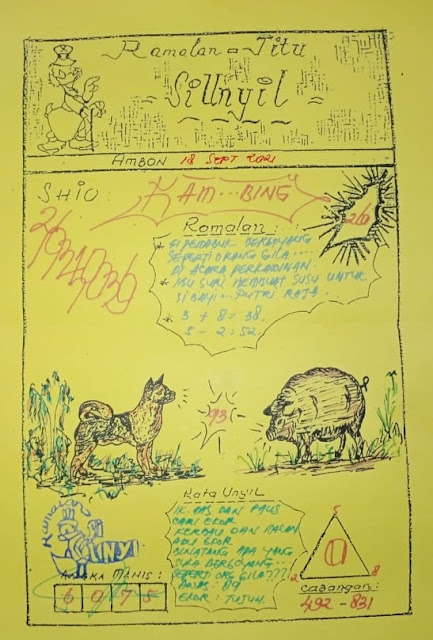 Ramalan = Jitu
= SiUnyil =
AMBON 18 SEPT 2021
SHIO : KAM...BING
Ramalan :
* SI PEMABUK BERGOYANG
SEPERTI ORANG GILA...
DI ACARA PERKAWINAN
* IBU SURI MEMBUAT SUSU UNTUK
SI BAYI...PUTRI RAJA.
* 3 + 8 = 38.
5 - 2 = 52.
93
Kata Unyil
IK. MAS DAN PAUS
CARI EKOR
KERBAU DAN MACAN
ADU EKOR
BINATANG APA YANG
SUKA BERGOYANG...
SEPERTI ORG GILA???
AWAS : 89
EKOR : TUJUH.
UNYIL
ANGKA MANIS :
6 9 7 5
5
2 8
Cabangan :
492 - 831